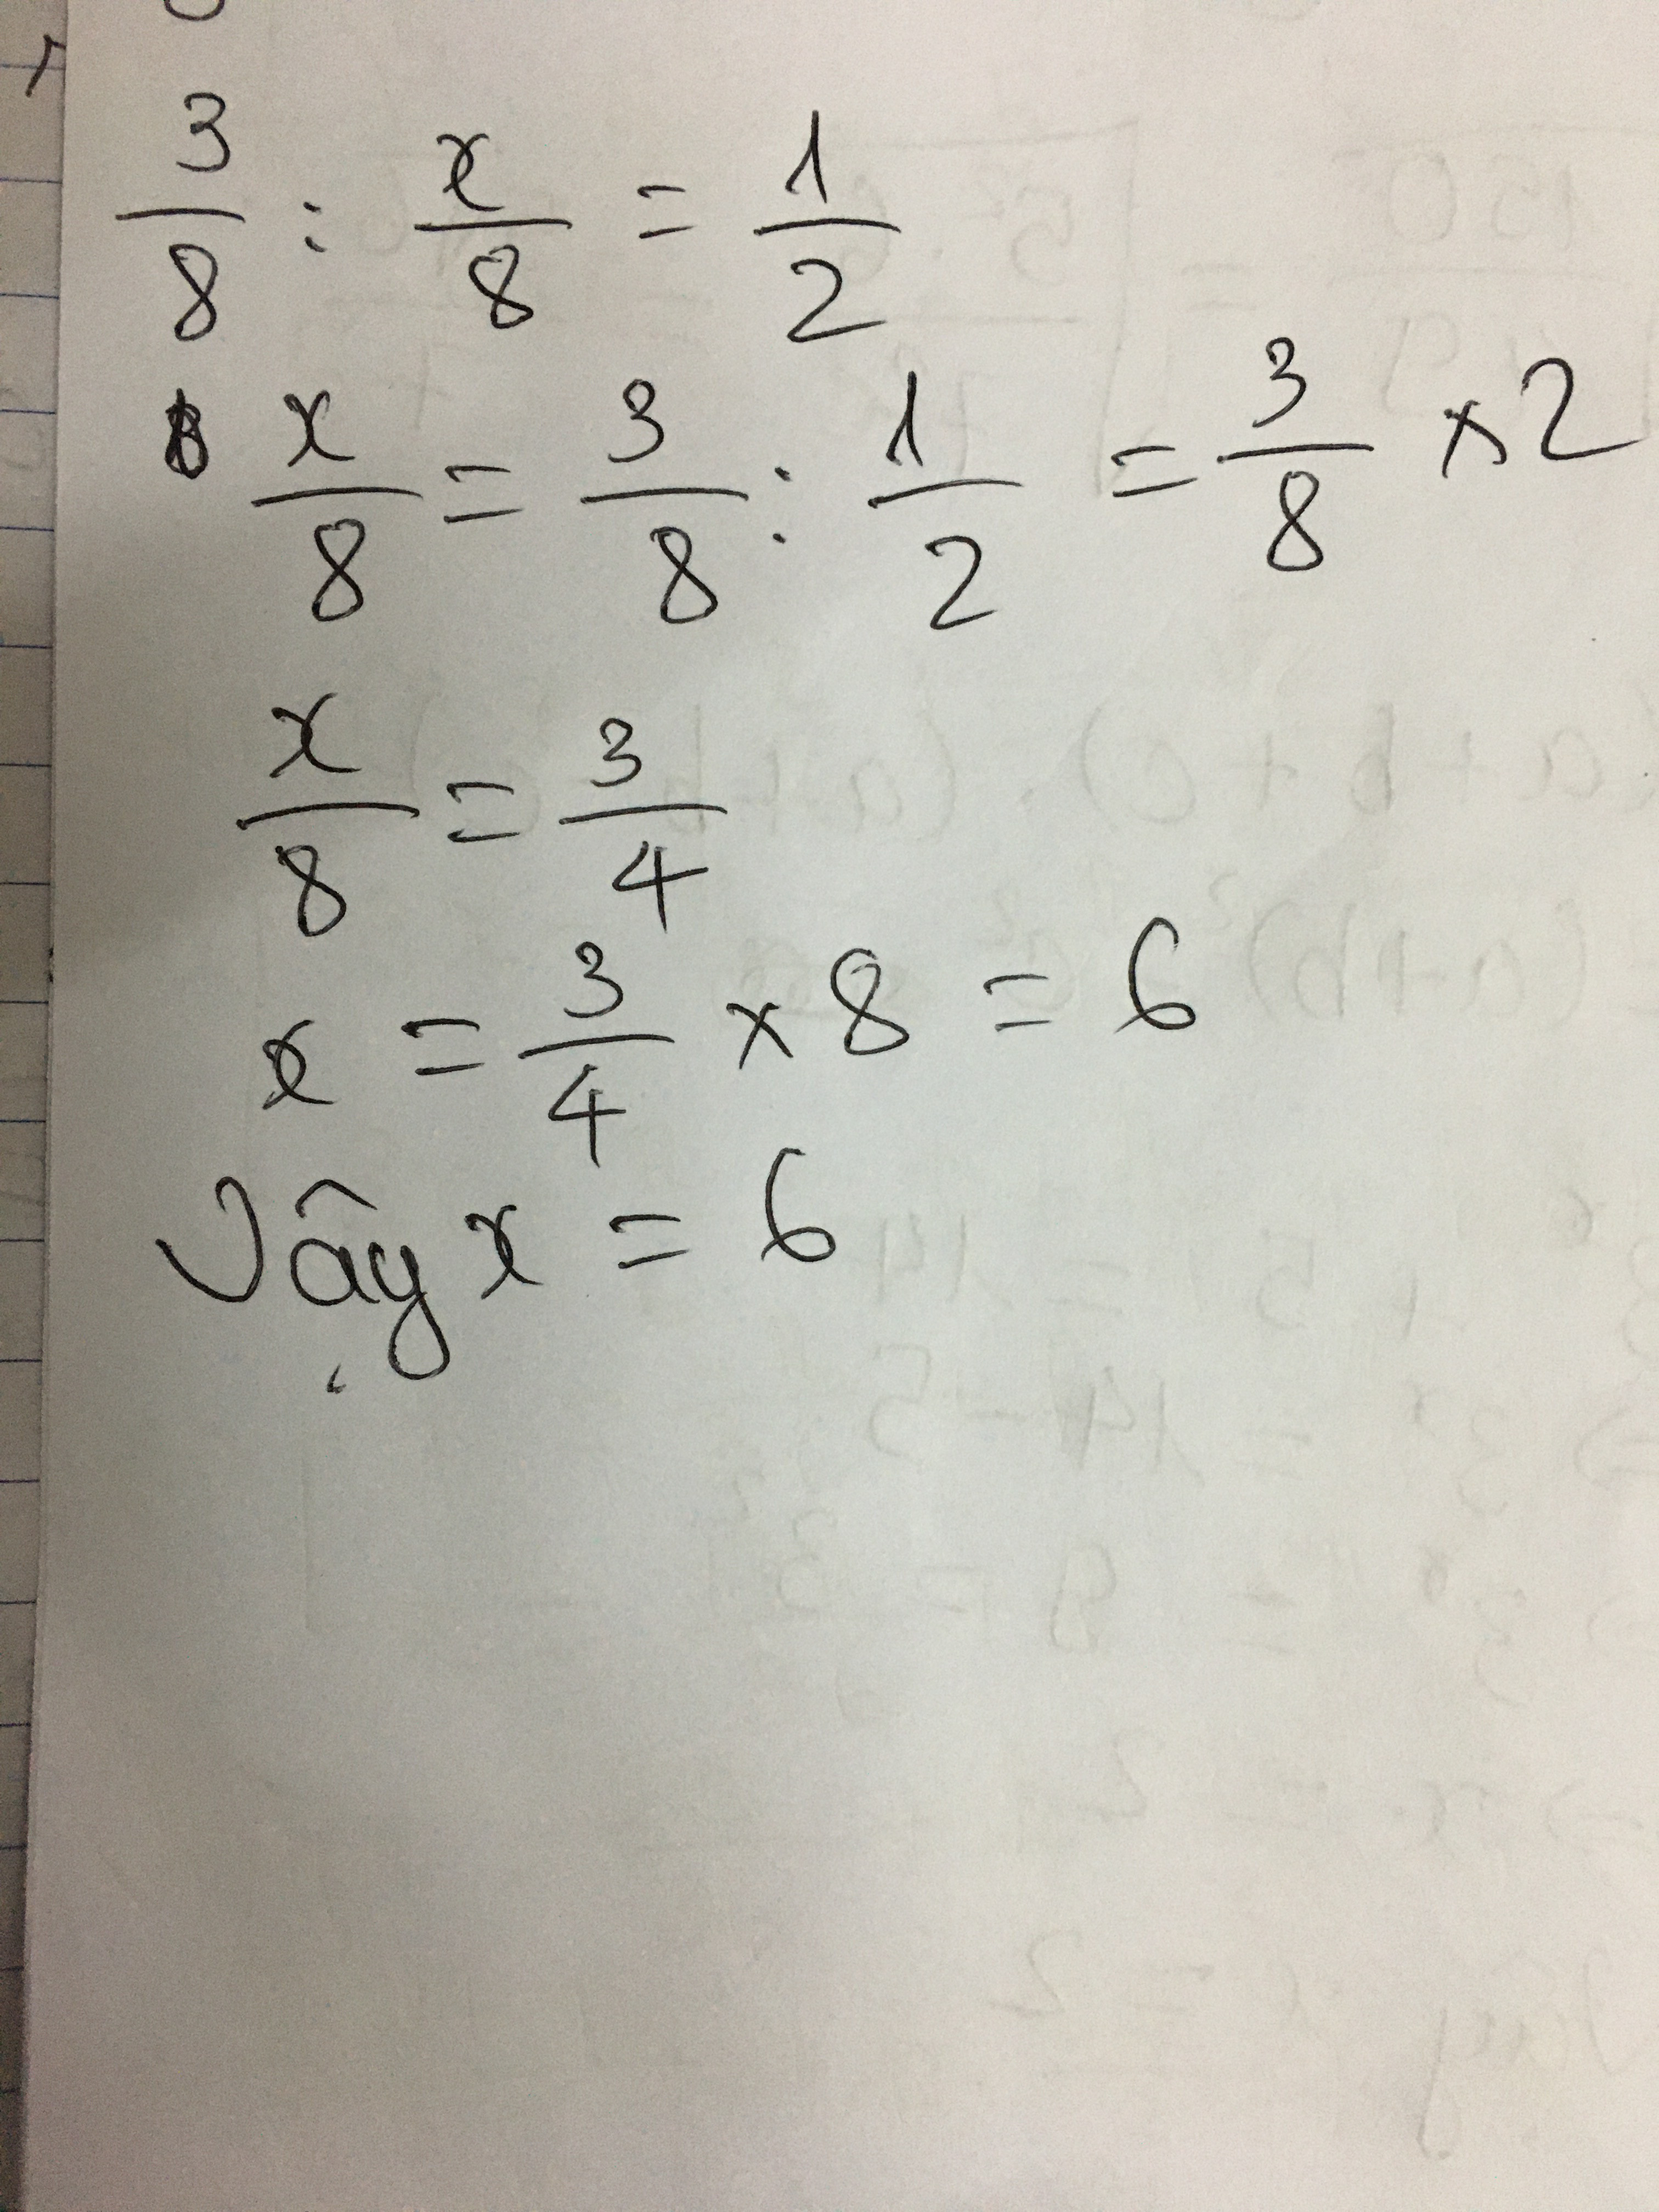 3/8 : x/8 = 1/2
x/8 = 3/8 : 1/2 = 3/8 × 2
x/8 = 3/4
x = 3/4 × 8 = 6
Vậy x = 6